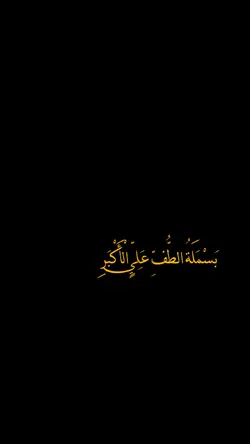 بَسْمَلَةُ الطُّفِّ عَلِيِّ الْأَكْبَرِ